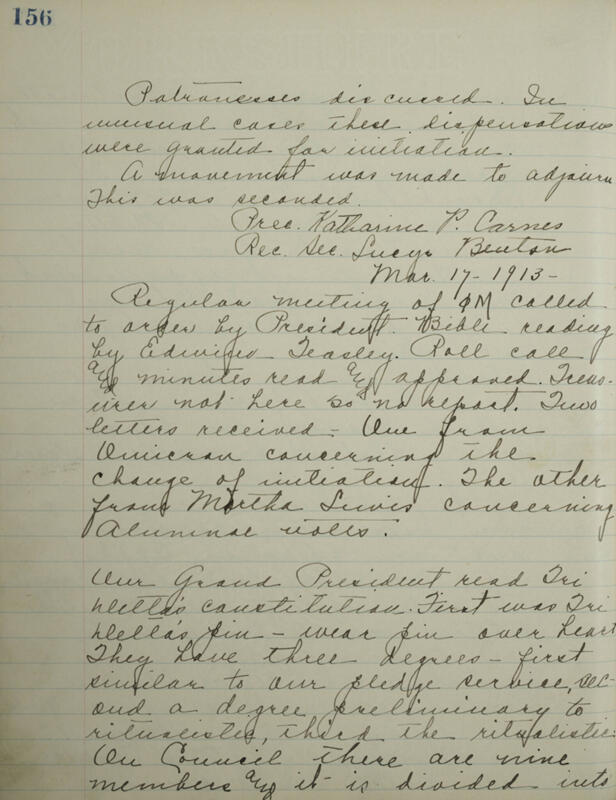 156
Patronesses discussed. In
unusual cases these dispensations
were granted for initiation.
A movement was made to adjourn
This was seconded.
Pres. Katharine P. Carnes
Rec. Sec. Lucy Benton
Mar. 17 - 1913 -
Regular meeting of ΦM called
to order by President. Bible reading
by Edwina Teasley. Roll call
and minutes read and approved. Treas-
urer not here so no report. Two
letters received - One from
Omicron concerning the
change of initiation. The other
from Martha Lewis concerning
Alumnae votes.
Our Grand President read Tri
Delta's constitution. First was Tri
Delta's pin - wear pin over heart
They have three degrees - first
similar to our pledge service, sec-
ond a degree preliminary to
ritualistic, third the ritualistic.
On Council there are nine
members and it is divided into